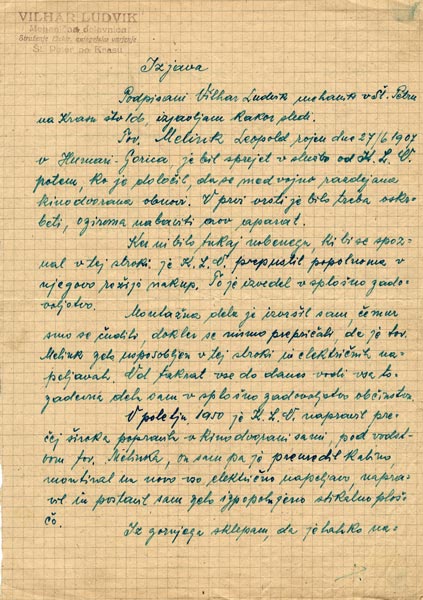 VILHAR LUDVIK
Mehanična delavnica
Št. Peter na Krasu
Izjava
Podpisani Vilhar Ludvik mehanik v Št. Petru
na Krasu štv 156, izjavljam kakor sledi.
Tov. Melink Leopold rojen dne 27/6 1907
v Gorica je bil sprejet v službo od K. L. O.
potem, ko je določil, da se med vojno razdejana
kinodvorana obnovi. V prvi vrsti je bilo treba oskr-
beti, oziroma nabaviti nov aparat.
Ker ni bilo tukaj nobenega, ki bi se spoz-
nal v tej stroki je K. L. O. prepustil popolnoma v
njegovo režijo nakup. To je izvedel v splošno zado-
voljstvo.
Montažna dela je izvršil sam, čemur
smo se čudili, dokler se nismo prepričali da je tov.
Melink zelo usposobljen v tej stroki in električnih na-
peljavah. Od takrat vse do danes vodi vsa to-
zadevna dela sam v splošno zadovoljstvo občinstva.
V poletju 1950 je K. L. O. napravil pre-
cej široka popravila v kinodvorani sami, pod vodst-
vom tov. Melinka, on sam pa je preuredil kabino
montiral na novo vso električno napeljavo napra-
vil in postavil sam zelo izpopolnjeno stikalno ploš-
čo.
Iz gornjega sklepam, da je lahko na-